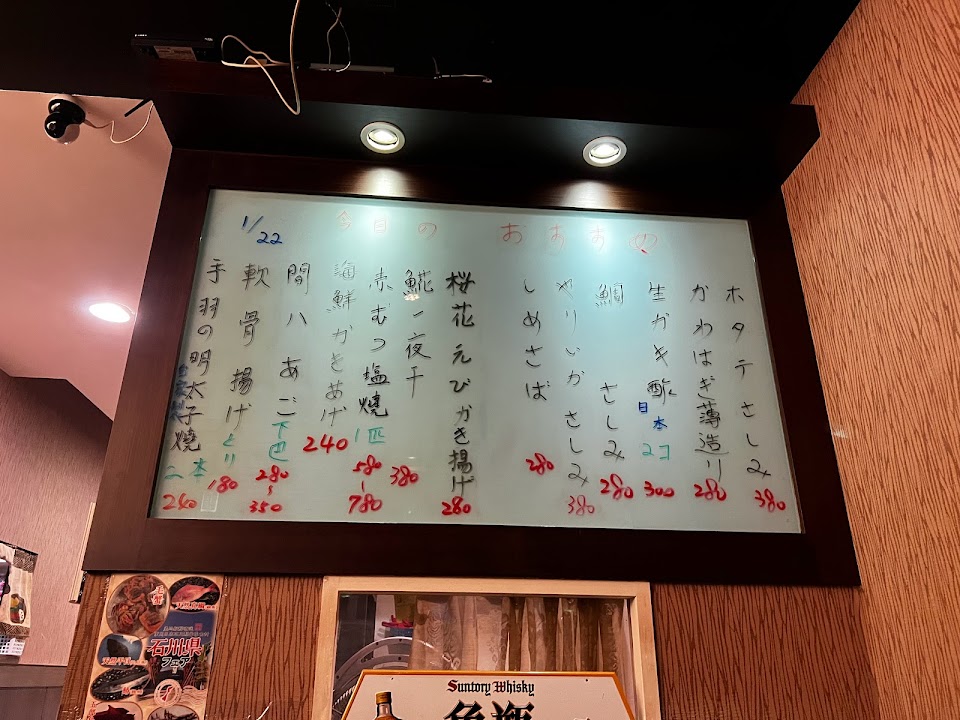 1/22
今日の おすすめ
ホタテさしみ 380
かわはぎ薄造り 280
生ガキ酢 日本 2コ 300
鯛 さしみ 280
やりいかさしみ 380
しめさば 280
桜花えびかき揚げ 280
鯱一夜干 380
赤むつ塩燒 1匹 580~780
海鮮かきあげ 240
間八あご 下巴 280~350
軟骨揚げ とり 180
手羽の明太子燒 二本 240
石川県
フェア
Suntory Whisky